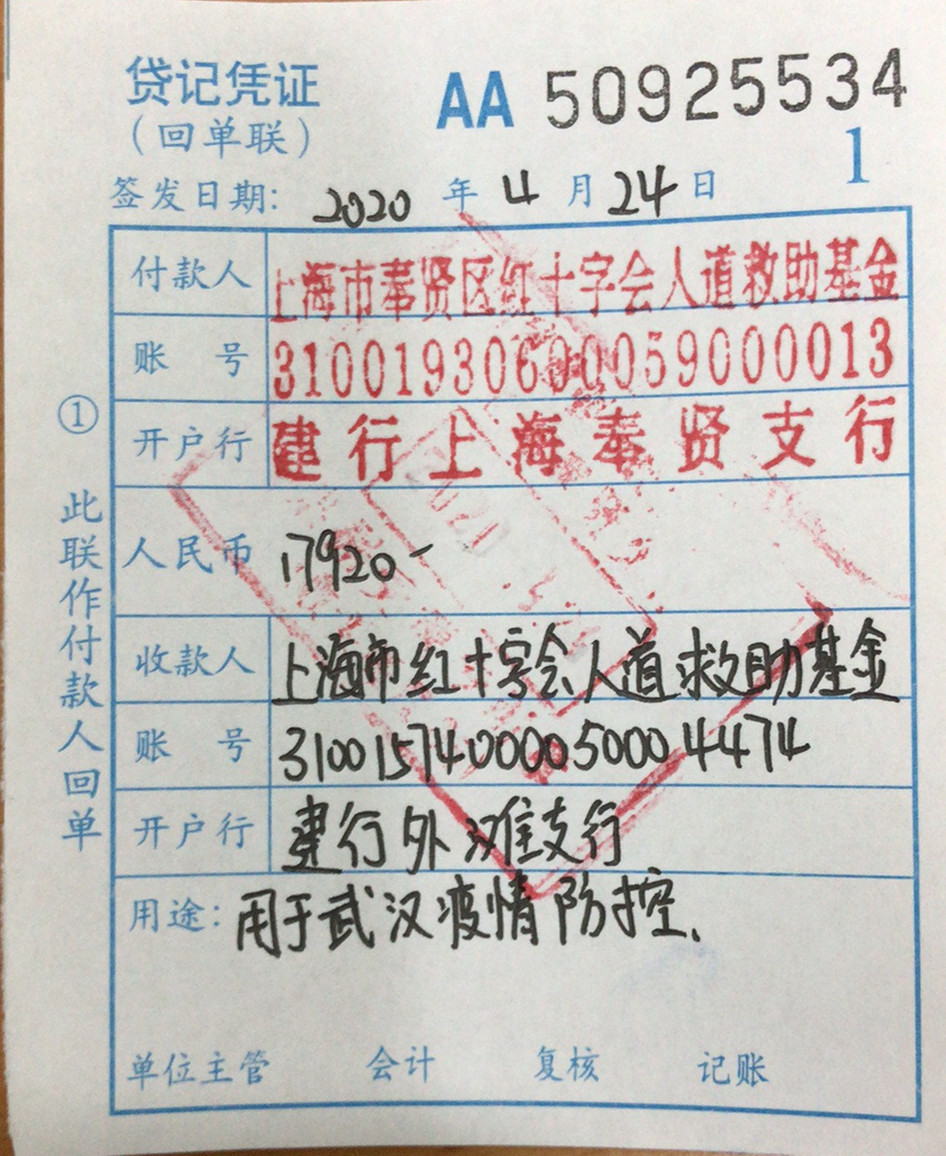 贷记凭证
AA 50925534
(回单联)
1
签发日期: 2020 年 4 月 24 日
付款人 上海市奉贤区红十字会人道救助基金
账 号 31001930600059000013
开户行 建行上海奉贤支行
人民币 17920-
收款人 上海市红十字会人道救助基金
账 号 31001574000050004474
开户行 建行外滩支行
用途: 用于武汉疫情防控、
单位主管 会计 复核 记账
① 此联作付款人回单